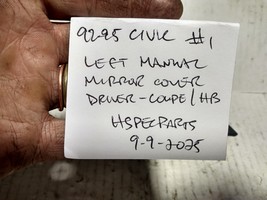 92-95 CIVIC #1
LEFT MANUAL
MIRROR COVER
DRIVER-COUPE/HB
HSPECPARTS
9-9-2025